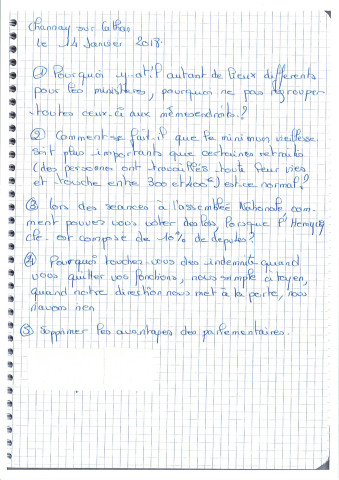 Channay sur Lathan
Le 14 Janvier 2018.
① Pourquoi y-at'il autant de lieux differents
pour les ministères, pourquoi ne pas regrouper
toutes ceux-ci aux mêmes endroits.?
② Comment se fait-il que le minimum vieillesse
soit plus importants que certaines retraites
(des personnes ont travaillés toute leur vies
et touche entre 300 et 400€) est ce normal?
③ Lors des seances à l'assemblée Nationale com
ment pouvez vous voter des lois lorsque l'Hemicy
cle est composé de 10% de deputés?
④ Pourquoi touchez vous des indemnité quand
vous quitter vos fonctions, nous simple citoyen,
quand notre direction nous met à la porte, nous
navons rien
⑤ Supprimer les avantages des parlementaires.